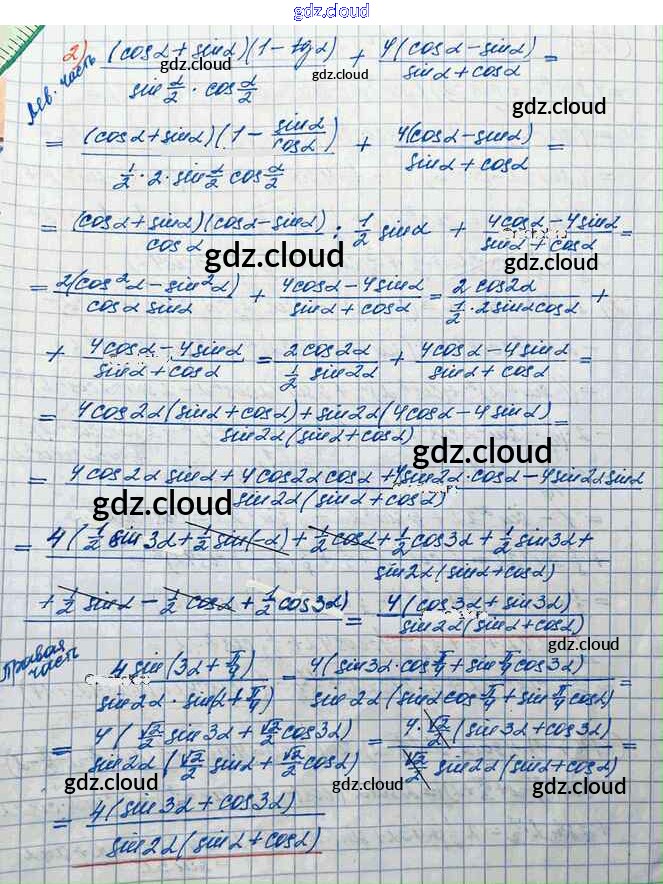 gdz.cloud
gdz.cloud
Лев. часть
2) (cosα + sinα)(1 - tgα) / (sin α/2 · cos α/2) + 4(cosα - sinα) / (sinα + cosα) =
gdz.cloud
gdz.cloud
gdz.cloud
= (cosα + sinα)(1 - sinα/cosα) / (1/2 · 2 · sin α/2 cos α/2) + 4(cosα - sinα) / (sinα + cosα) =
= (cosα + sinα)(cosα - sinα) / cosα : 1/2 sinα + (4cosα - 4sinα) / (sinα + cosα) =
gdz.cloud
= 2(cos²α - sin²α) / (cosα sinα) + (4cosα - 4sinα) / (sinα + cosα) = 2cos2α / (1/2 · 2sinα cosα) +
+ (4cosα - 4sinα) / (sinα + cosα) = 2cos2α / (1/2 sin2α) + (4cosα - 4sinα) / (sinα + cosα) =
= (4cos2α(sinα + cosα) + sin2α(4cosα - 4sinα)) / (sin2α(sinα + cosα)) =
gdz.cloud
= (4cos2α sinα + 4cos2α cosα + 4sin2α · cosα - 4sin2α sinα) / (sin2α(sinα + cosα))
gdz.cloud
= 4(1/2 sin3α + 1/2 sin(-α) + 1/2 cosα + 1/2 cos3α + 1/2 sin3α +
sin2α(sinα + cosα)
+ 1/2 sinα - 1/2 cosα + 1/2 cos3α) = 4(cos3α + sin3α) / (sin2α(sinα + cosα))
Правая часть
4sin(3α + π/4) / (sin2α · sin(α + π/4)) = 4(sin3α · cos π/4 + sin π/4 cos3α) / (sin2α(sinα cos π/4 + sin π/4 cosα)) =
= 4(√2/2 sin3α + √2/2 cos3α) / (sin2α(√2/2 sinα + √2/2 cosα)) = 4 · √2/2 (sin3α + cos3α) / (√2/2 sin2α(sinα + cosα)) =
gdz.cloud
gdz.cloud
gdz.cloud
= 4(sin3α + cos3α) / (sin2α(sinα + cosα))